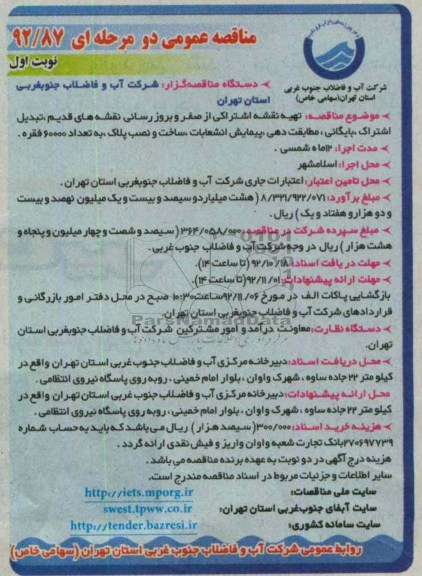 مناقصه عمومی دو مرحله ای ۹۲/۸۷
نوبت اول
شرکت آب و فاضلاب جنوب غربی
استان تهران(سهامی خاص)
دستگاه مناقصه‌گزار: شرکت آب و فاضلاب جنوبغربی
استان تهران
موضوع مناقصه: تهیه نقشه اشتراکی از صفر و بروز رسانی نقشه های قدیم ،تبدیل
اشتراک ،بایگانی ، مطابقت دهی ،پیمایش انشعابات ،ساخت و نصب پلاک ،به تعداد ۶۰۰۰۰ فقره .
مدت اجرا: ۱۲ماه شمسی .
محل اجرا: اسلامشهر
محل تامین اعتبار: اعتبارات جاری شرکت آب و فاضلاب جنوبغربی استان تهران .
مبلغ برآورد: ۸/۳۲۱/۹۲۲/۰۷۱ ( هشت میلیاردو سیصد و بیست و یک میلیون نهصد و بیست
و دو هزارو هفتاد و یک ) ریال .
مبلغ سپرده شرکت در مناقصه: ۳۶۴/۰۵۸/۰۰۰ ( سیصد و شصت و چهار میلیون و پنجاه و
هشت هزار ) ریال در وجه شرکت آب و فاضلاب جنوب غربی.
مهلت دریافت اسناد: ۹۲/۱۰/۱۸ (تا ساعت ۱۴).
مهلت ارائه پیشنهادات: ۹۲/۱۱/۰۱ (تا ساعت ۱۴).
بازگشایی پاکات الف در مورخ ۹۲/۱۱/۰۶ ساعت ۱۰:۳۰ صبح در محل دفتر امور بازرگانی و
قراردادهای شرکت آب و فاضلاب جنوبغربی استان تهران.
دستگاه نظارت: معاونت درآمد و امور مشترکین شرکت آب و فاضلاب جنوبغربی استان
تهران.
محل دریافت اسناد: دبیرخانه مرکزی آب و فاضلاب جنوب غربی استان تهران واقع در
کیلو متر ۲۲ جاده ساوه ، شهرک واوان ، بلوار امام خمینی ، روبه روی پاسگاه نیروی انتظامی .
محل ارائه پیشنهادات: دبیرخانه مرکزی آب و فاضلاب جنوب غربی استان تهران واقع در
کیلو متر ۲۲ جاده ساوه ، شهرک واوان ، بلوار امام خمینی ، روبه روی پاسگاه نیروی انتظامی .
هزینه خرید اسناد: ۳۰۰/۰۰۰( سیصد هزار ) ریال می باشد که باید به حساب شماره
۲۷۰۶۹۷۷۳۹بانک تجارت شعبه واوان واریز و فیش نقدی ارائه گردد .
هزینه درج آگهی در دو نوبت به عهده برنده مناقصه می باشد .
سایر اطلاعات و جزئیات مربوط در اسناد مناقصه مندرج است.
سایت ملی مناقصات: http://iets.mporg.ir
سایت آبفای جنوب‌غربی استان تهران: swest.tpww.co.ir
سایت سامانه کشوری: http://tender.bazresi.ir
روابط عمومی شرکت آب و فاضلاب جنوب غربی استان تهران (سهامی خاص)
ParsNamadData